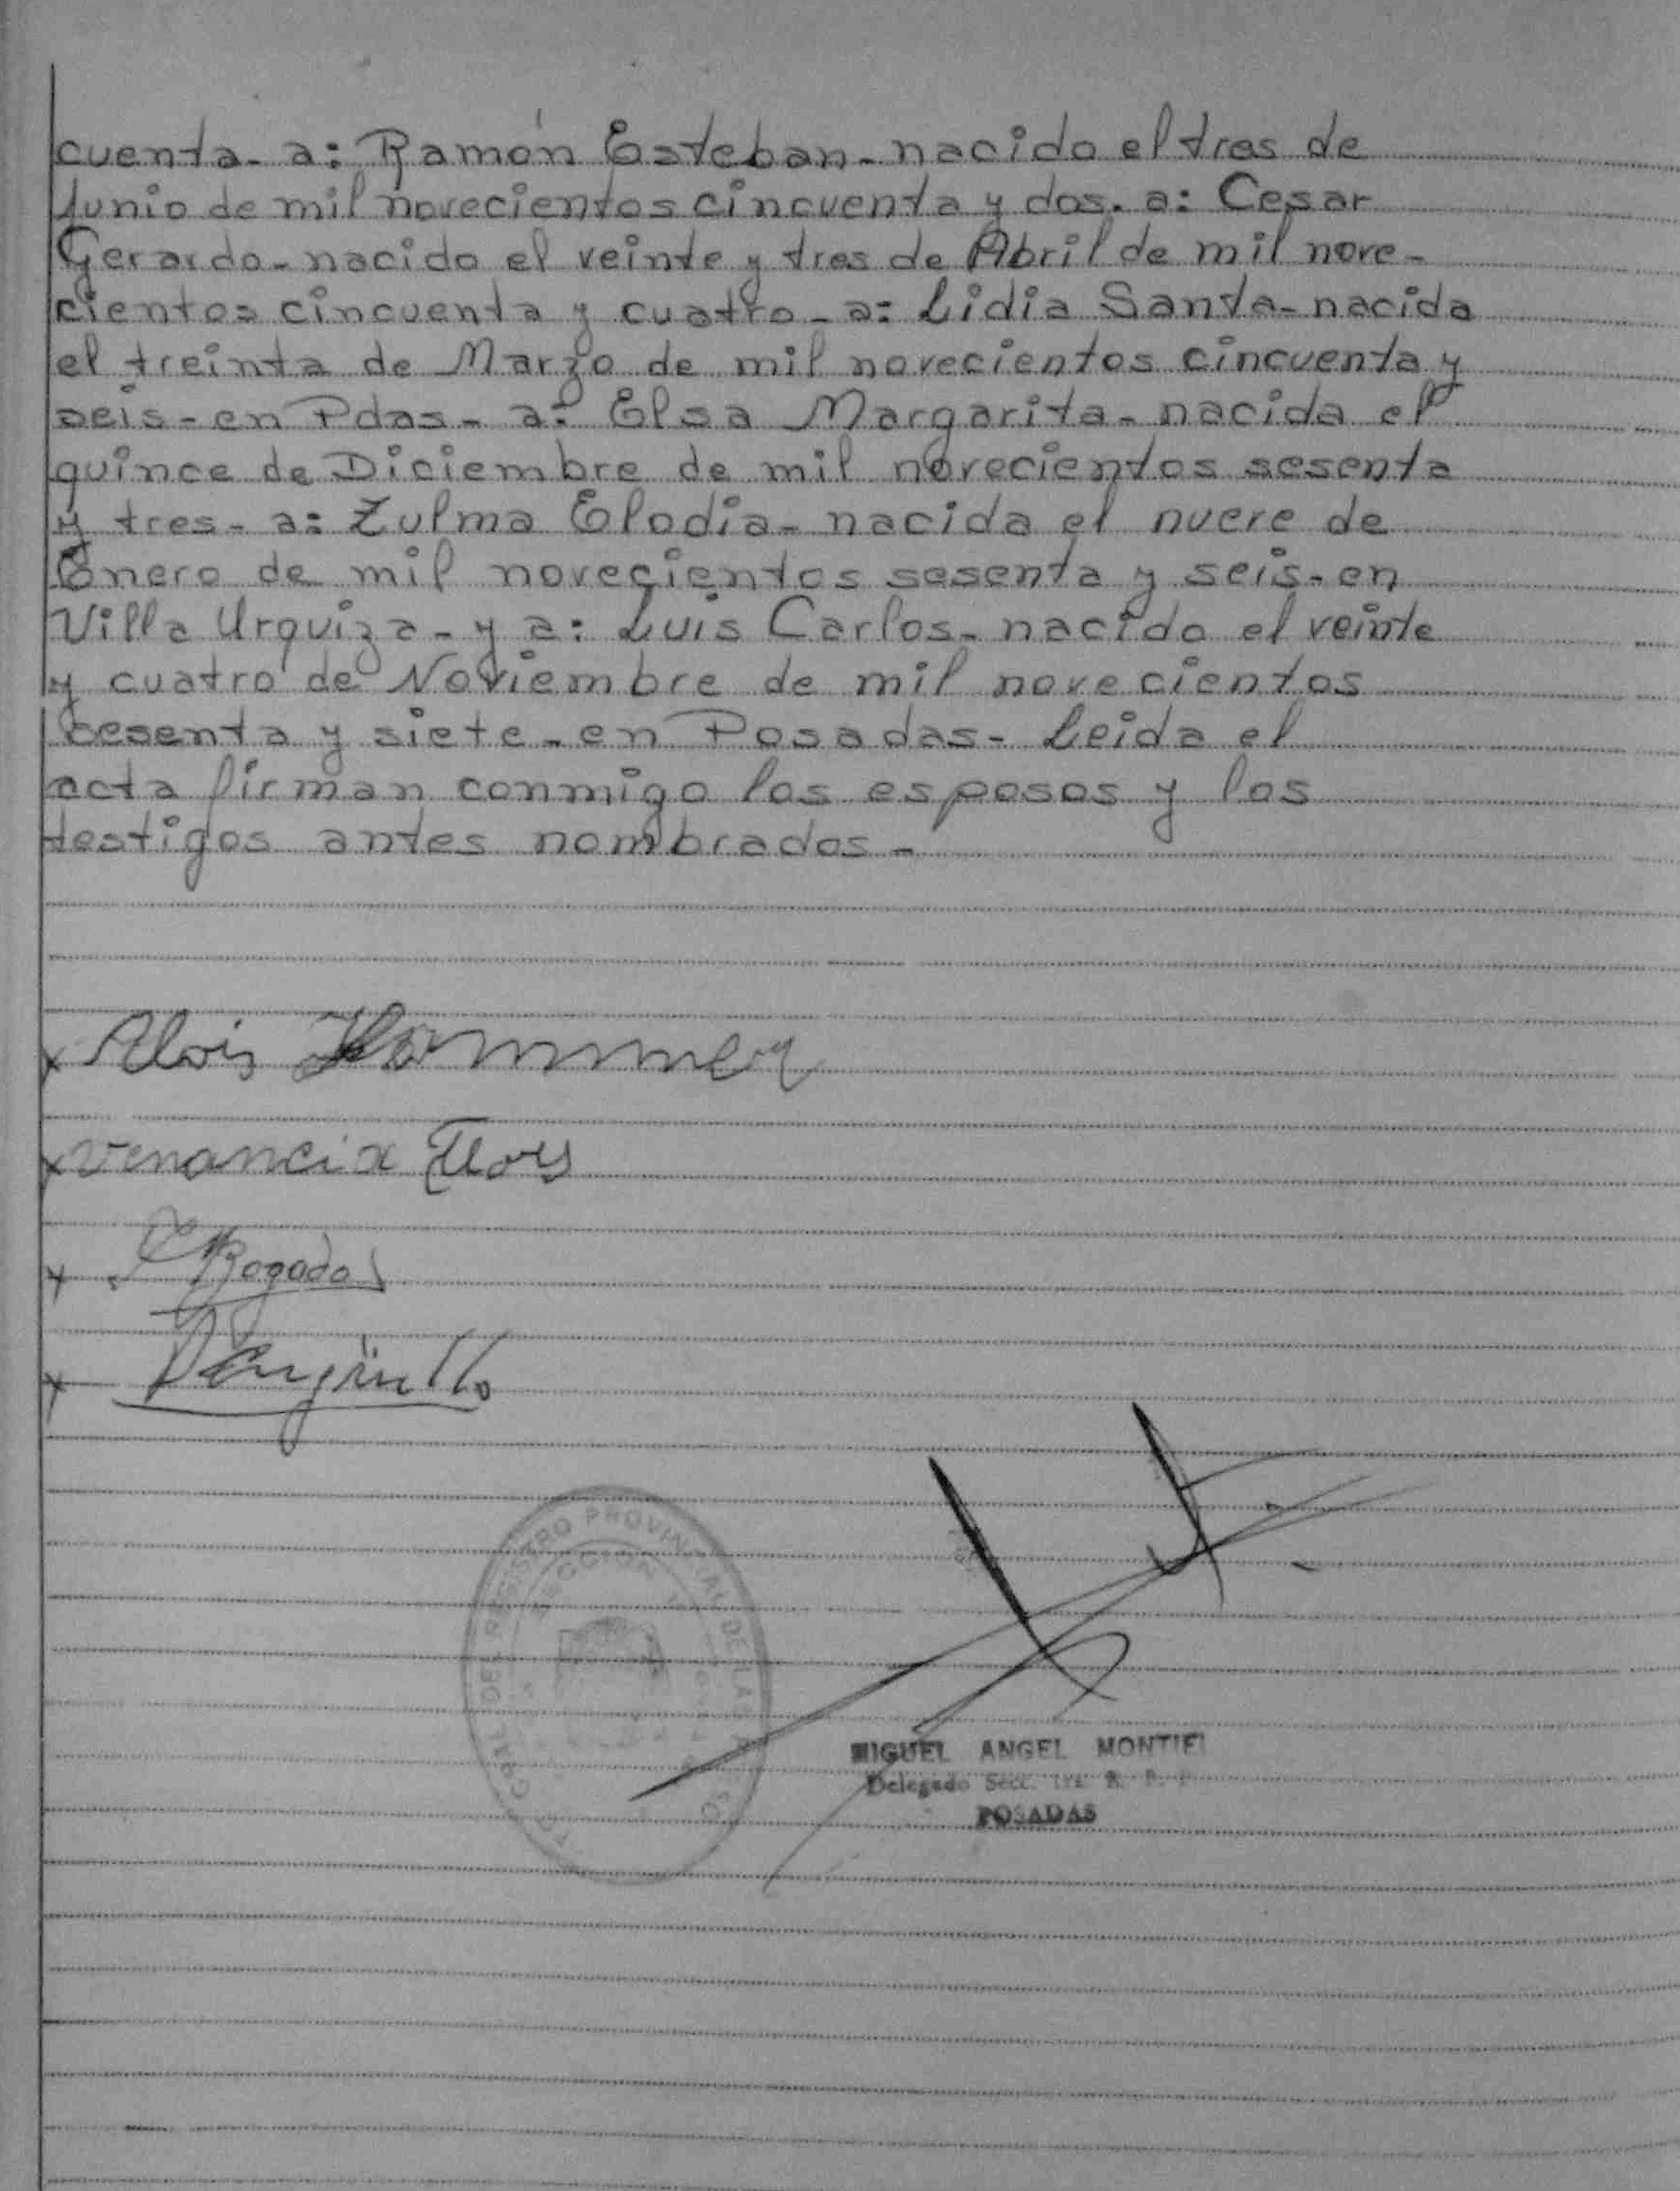 cuenta- a: Ramón Esteban- nacido el tres de
Junio de mil novecientos cincuenta y dos. a: Cesar
Gerardo- nacido el veinte y tres de Abril de mil nove-
cientos cincuenta y cuatro- a: Lidia Santa- nacida
el treinta de Marzo de mil novecientos cincuenta y
seis- en Pdas- a: Elsa Margarita- nacida el
quince de Diciembre de mil novecientos sesenta
y tres- a: Zulma Elodia- nacida el nueve de
Enero de mil novecientos sesenta y seis- en
Villa Urquiza- y a: Luis Carlos- nacido el veinte
y cuatro de Noviembre de mil novecientos
sesenta y siete- en Posadas- Leida el
acta firman conmigo los esposos y los
testigos antes nombrados-
x Alois Hammer
x Venancia Flores
x Bogado
x
REGISTRO PROVINCIAL DE LAS
SECCION
MIGUEL ANGEL MONTIEL
Delegado Secc. 1ra. R. P.
POSADAS